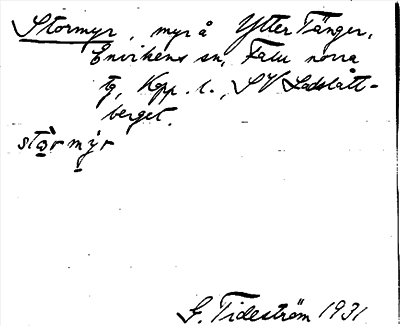 Stormyr, myr å Ytter Tänger,
Envikens sn, Falu norra
tg, Kopp. l., SV Ladslått-
berget.
stòrmýr
G. Tideström 1931